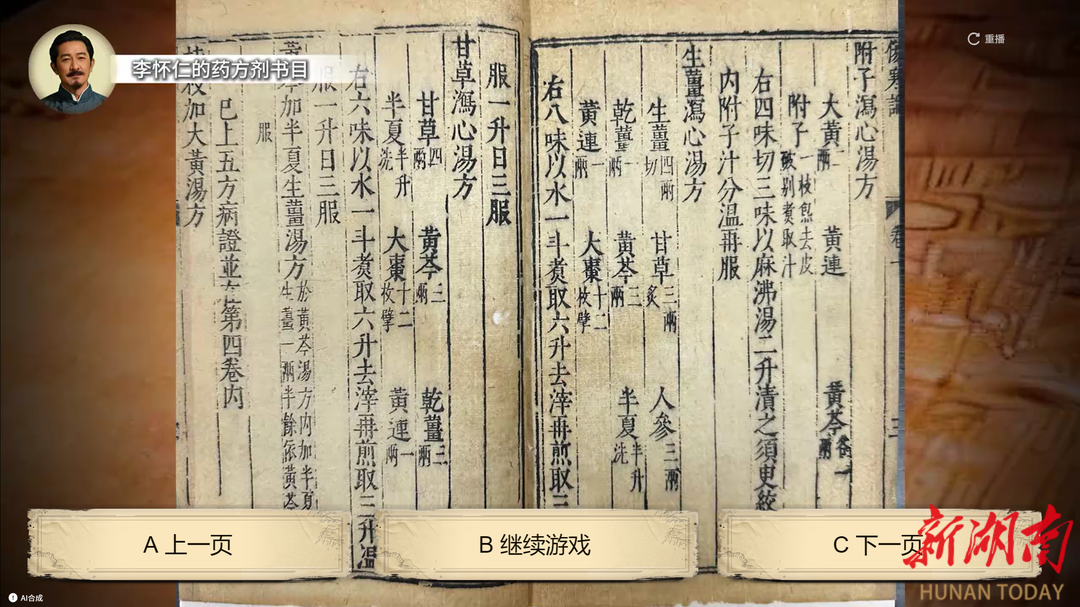 李怀仁的药方剂书目
重播
傷寒論
附子瀉心湯方
大黄二兩 黄連 黄芩各一兩
附子一枝炮去皮破别煑取汁
右四味切三味以麻沸湯二升漬之須臾絞
内附子汁分温再服
生薑瀉心湯方
生薑四兩切 甘草三兩炙 人參三兩
乾薑一兩 黄芩三兩 半夏半升洗
黄連一兩 大棗十二枚擘
右八味以水一斗煑取六升去滓再煎取三
服一升日三服
甘草瀉心湯方
甘草四兩 黄芩三兩 乾薑三兩
半夏半升洗 大棗十二枚擘 黄連一兩
右六味以水一斗煑取六升去滓再煎取三升温
服一升日三服
黄芩加半夏生薑湯方 於黄芩湯方内加半夏生薑一兩半餘依黄芩
服
已上五方病證並在第四卷内
桂枝加大黄湯方
A 上一页
B 继续游戏
C 下一页
新湖南
HUNAN TODAY
AI合成